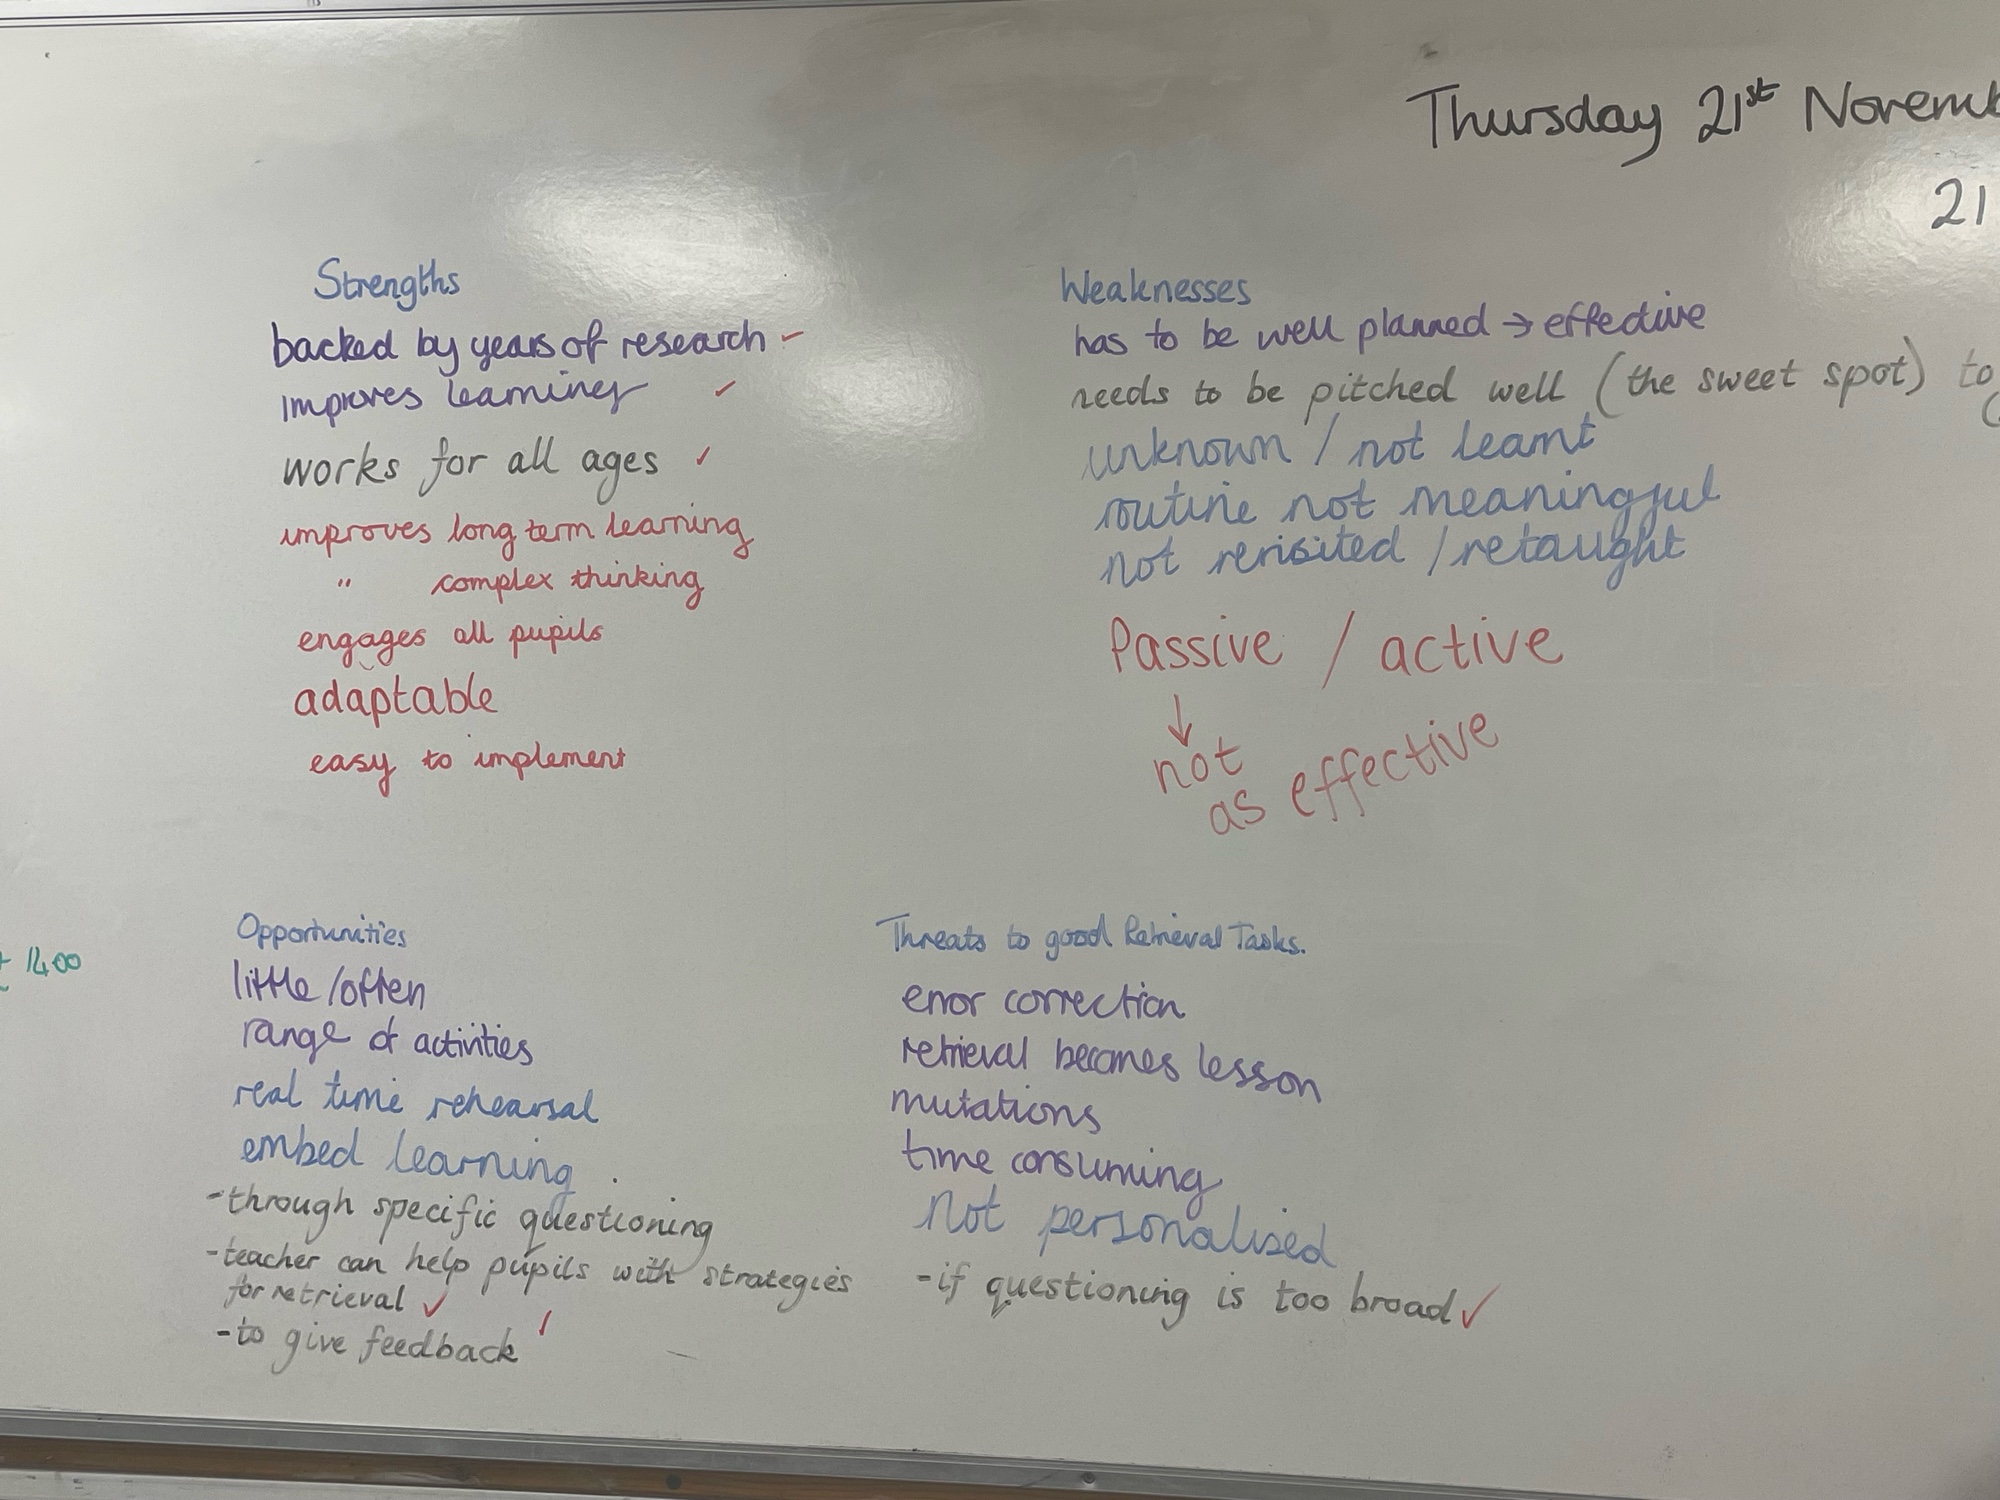 Thursday 21st Novemb
21
Strengths
backed by years of research
improves learning
works for all ages
improves long term learning
" complex thinking
engages all pupils
adaptable
easy to implement
Weaknesses
has to be well planned → effective
needs to be pitched well (the sweet spot) to
unknown / not learnt
routine not meaningful
not revisited / retaught
Passive / active
↓
not
as effective
1400
Opportunities
little / often
range of activities
real time rehearsal
embed learning
- through specific questioning
- teacher can help pupils with strategies
for retrieval ✓
- to give feedback
Threats to good Retrieval Tasks.
error correction
retrieval becomes lesson
mutations
time consuming
Not personalised
- if questioning is too broad ✓